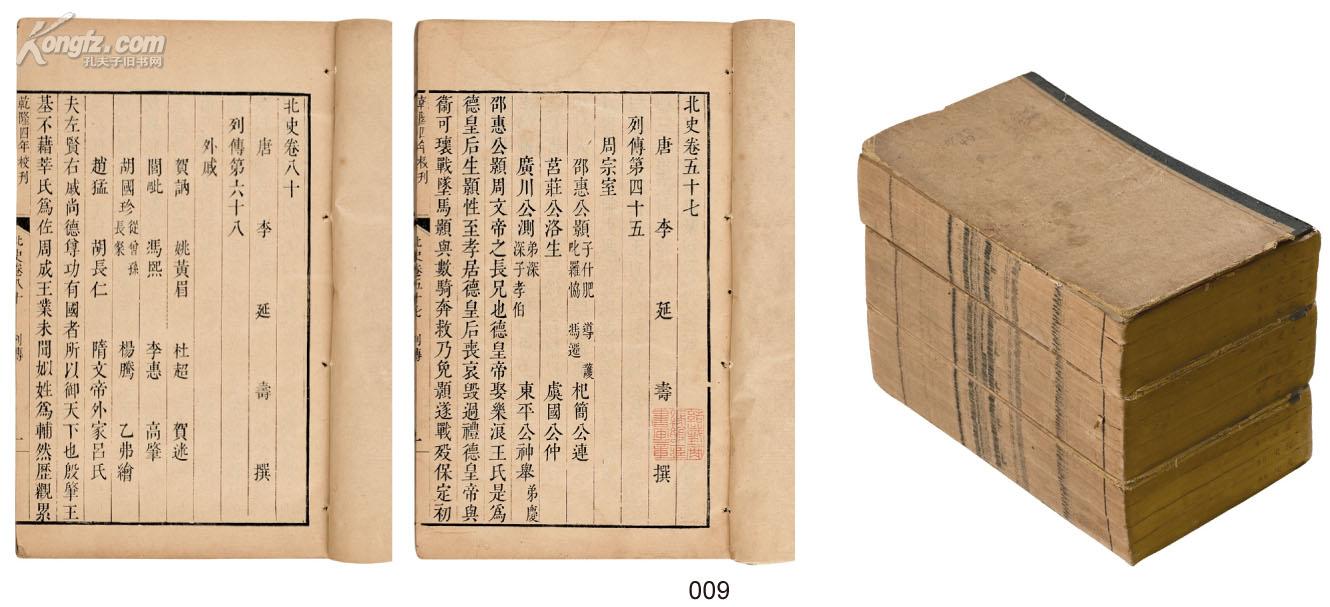 Kongfz.com
孔夫子旧书网
北史卷八十
唐 李 延 壽 撰
列傳第六十八
外戚
賀訥 姚黃眉 杜超 賀迷
閭毗 馮熙 李惠 高肇
胡國珍 從曾孫長粲 楊騰 乙弗繪
趙猛 胡長仁 隋文帝外家呂氏
夫左賢右戚尚德尊功有國者所以御天下也殷肇王
基不藉莘氏爲佐周成王業未聞姒姓爲輔然歷觀累
乾隆四年校刊
北史卷八十 列傳 一
北史卷五十七
唐 李 延 壽 撰
列傳第四十五
周宗室
邵惠公顥 子什肥 導 護 叱羅協 馮遷 杞簡公連
莒莊公洛生 虞國公仲
廣川公測 弟深 深子孝伯 東平公神舉 弟慶
邵惠公顥周文帝之長兄也德皇帝娶樂浪王氏是爲
德皇后生顥性至孝居德皇后喪哀毀過禮德皇帝與
衞可瓌戰墜馬顥與數騎奔救乃免顥遂戰歿保定初
乾隆四年校刊
北史卷五十七 列傳 一
009